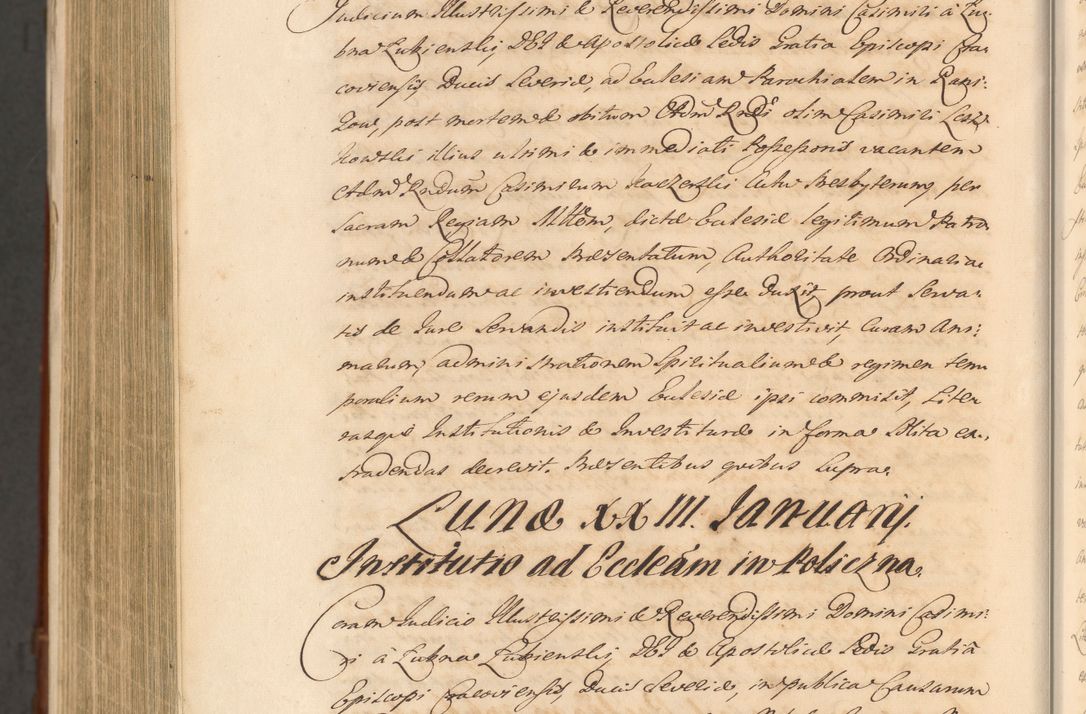 Judicium Illustrissimi & Reverendissimi Domini Casimiri à Łu:
bna Łubienskij, DEI & Apostolicæ Sedis Gratia Episcopi Cra:
coviensis Ducis Severiæ, ad Eclesiam Parochialem in Rani:
zow, post mortem & obitum Adm Rndi olim Casimiri Lesz:
kowskii illius ultimi & immediati Possessoris vacantem
Adm Rndum Casimirum Kaczerskii Presbyterum, per
Sacram Regiam Mttem, dictæ Eclesiæ legitimum Patro
num & Collatorem Præsentatum, Authoritate Ordinaria
instituendum ac investiendum esse duxit, prout Serva:
tis de Jure Servandis instituit ac investivit, Curam Ani:
marum, administrationem Spiritualium & regimen tem
poralium rerum ejusdem Eclesiæ ipsi commisit, Liter
rasque Institutionis & Investituræ in forma solita ex:
tradendas decrevit. Præsentibus quibus supra.
LUNÆ XXIII. Januarij.
Institutio ad Eccleam in Policzna.
Coram Judicio Illustrissimi & Reverendissimi Domini Casimi:
ri à Łubna Łubienskij, DEI & Apostolicæ Sedis Gratiâ
Episcopi Cracoviensis, Ducis Severiæ, in publica Causarum